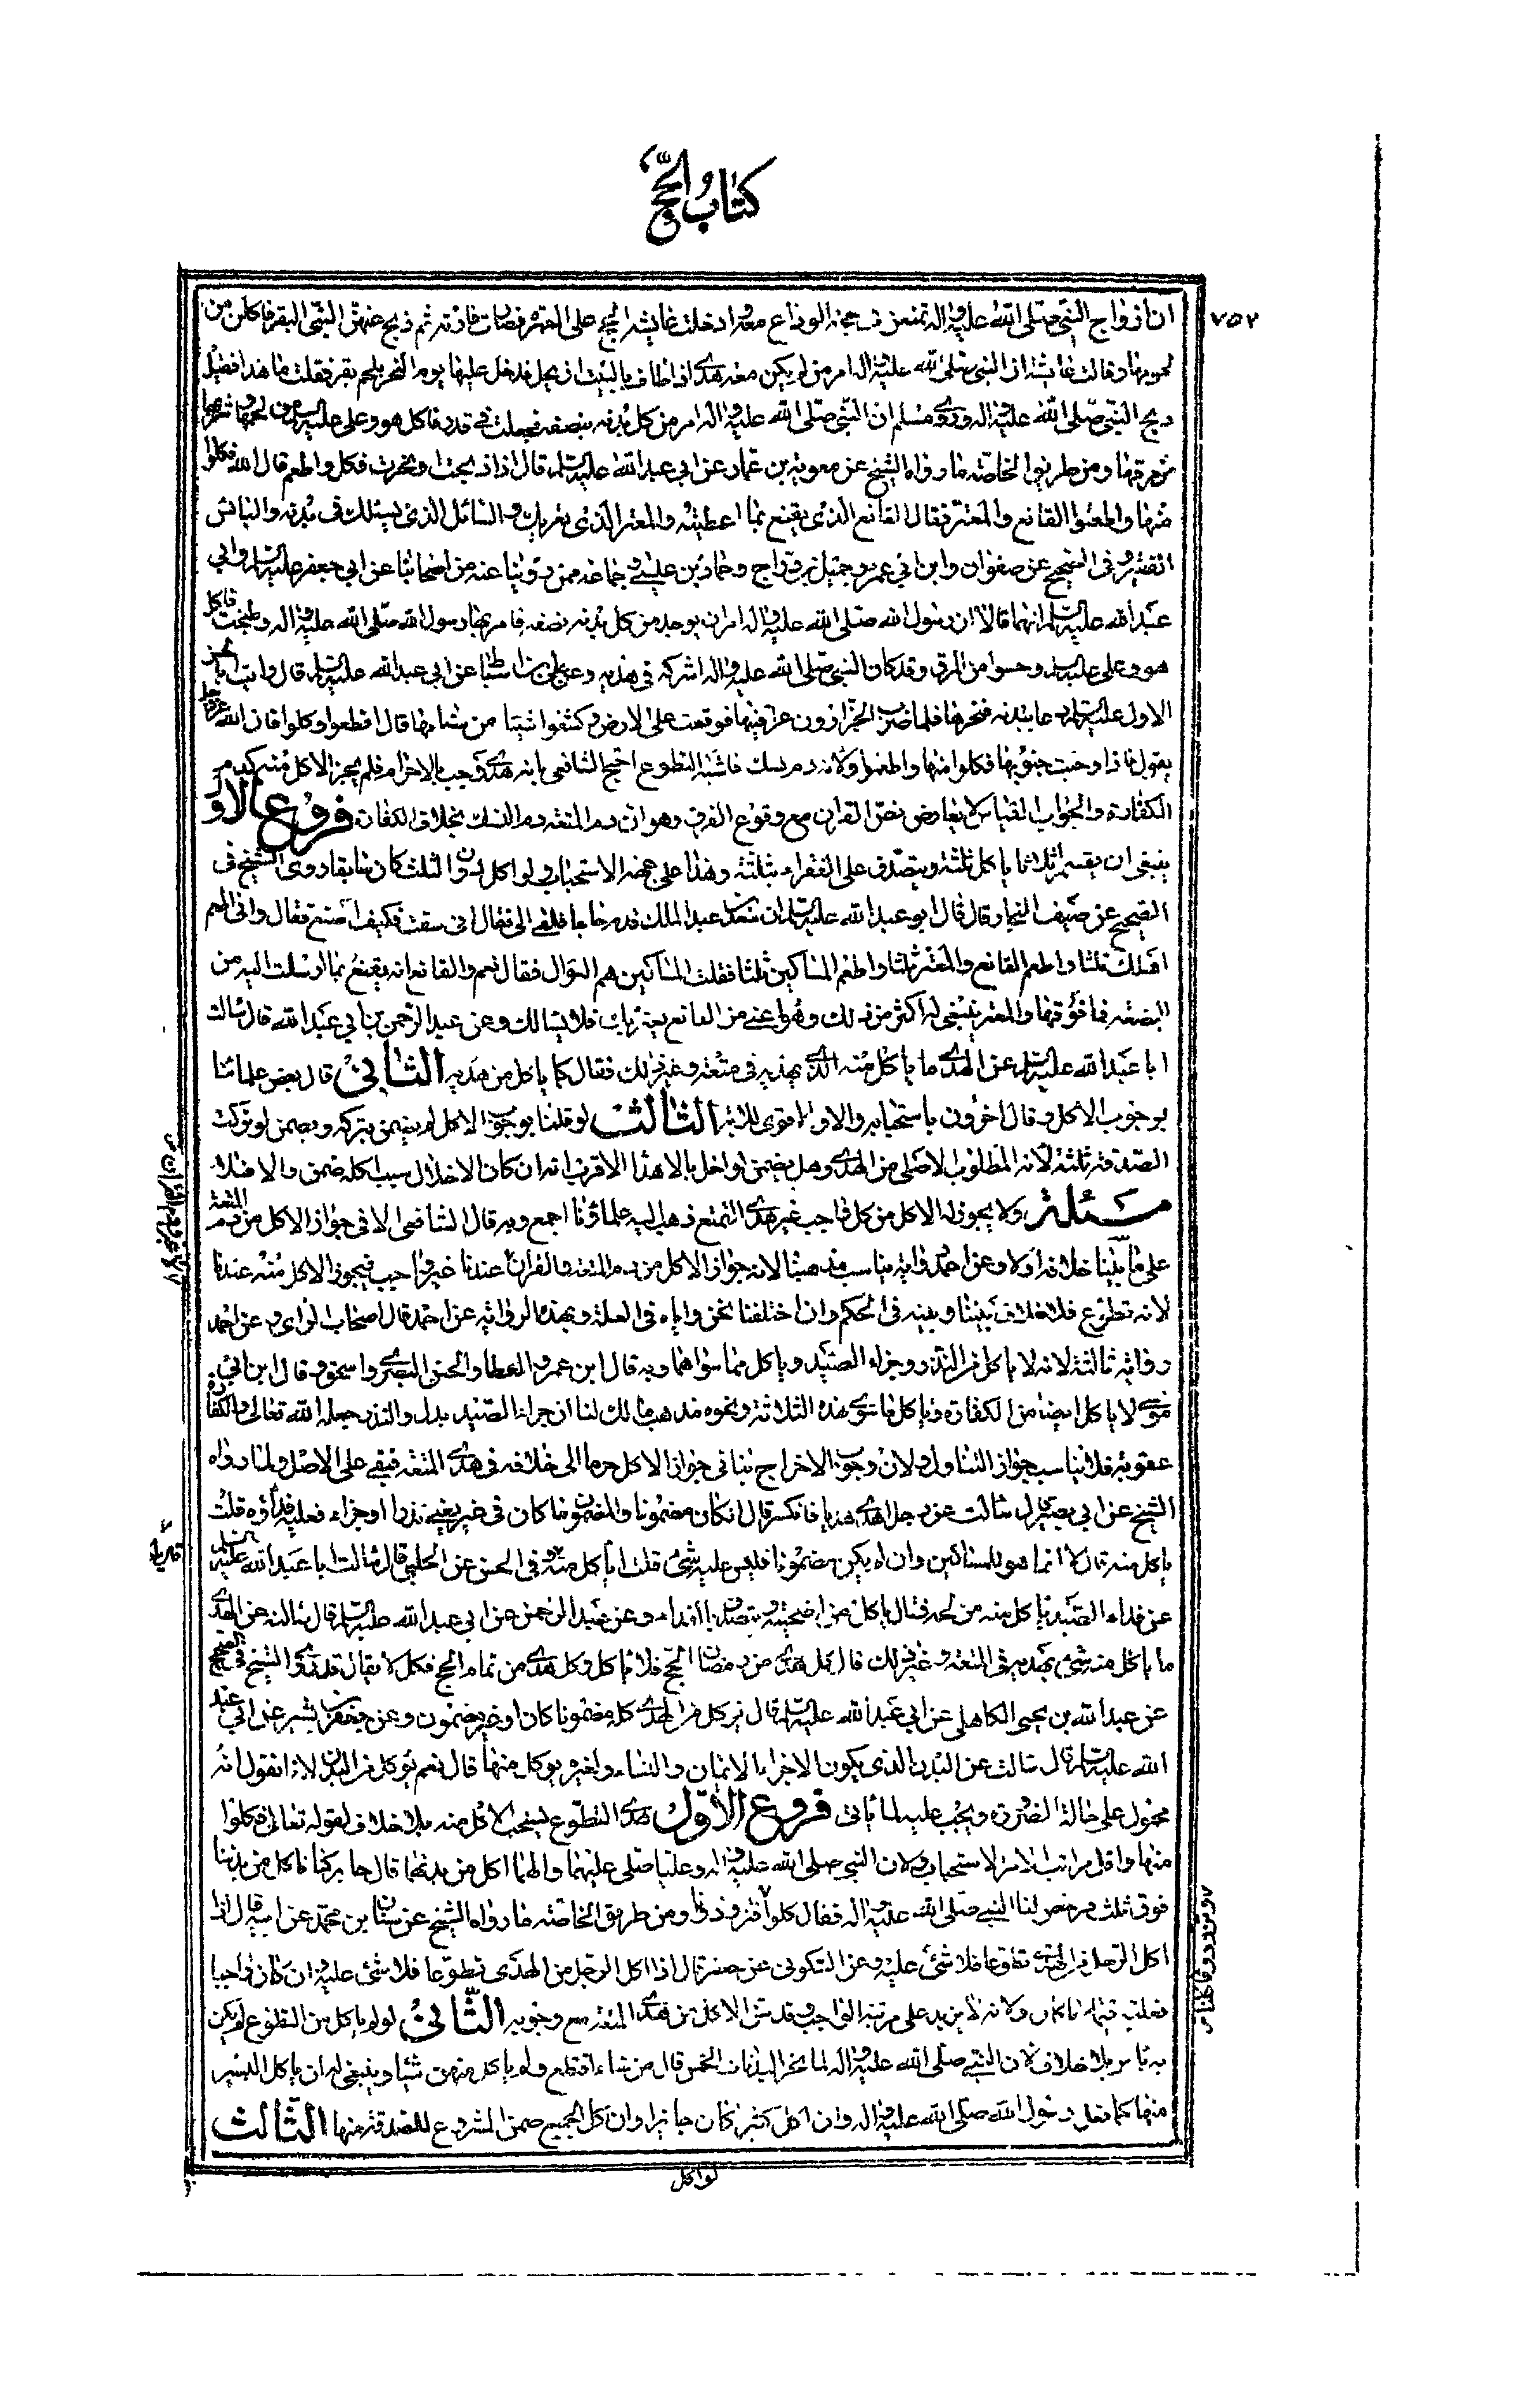 كتاب الحج
٧٥٢
ان ازواج النبي صلى الله عليه واله تمتعن في حجة الوداع معه وادخلت عايشة الحج على العمرة فصارت قارنة ثم ذبح عنهن النبي البقر فاكلن من
لحومها وقالت عايشة ان النبي صلى الله عليه واله امر من لم يكن معه هدي اذا طاف بالبيت ان يحل فدخل علينا يوم النحر بلحم بقر فقلت ما هذا فقيل
ذبح النبي صلى الله عليه واله وروى مسلم ان النبي صلى الله عليه واله امر من كل بدنة ببضعة فجعلت في قدر فاكل هو وعلي عليه السلام من لحمها وشربا
من مرقها ومن طريق الخاصة ما رواه الشيخ عن معوية بن عمار عن ابي عبد الله عليه السلام قال اذا ذبحت او نحرت فكل واطعم قال الله فكلوا
منها واطعموا القانع والمعتر فقال القانع الذي يقنع بما اعطيته والمعتر الذي يعتريك والسائل الذي يسئلك في يديه والبائس
الفقير وفي الصحيح عن صفوان وابن ابي عمير وجميل بن دراج وحماد بن عيسى وجماعة ممن روينا عنه من اصحابنا عن ابي جعفر عليه السلام وابي
عبد الله عليه السلام انهما قالا ان رسول الله صلى الله عليه واله امر ان يوخذ من كل بدنة بضعة فامر بها رسول الله صلى الله عليه واله وطبخت فاكل
هو وعلي عليه السلام وحسوا من المرق وقد كان النبي صلى الله عليه واله اشركه في هديه وعن علي بن اسباط عن ابي عبد الله عليه السلام قال رايت ابا الحسن
الاول عليه السلام دعا ببدنة فنحرها فلما ضرب الجزارون عراقيبها فوقعت على الارض وكشفوا شيئا من سنامها قال اقطعوا وكلوا فان الله عز وجل
يقول فاذا وجبت جنوبها فكلوا منها واطعموا ولانه دم نسك فاشبه التطوع احتج الشافعي بانه هدي وجب بالاحرام فلم يجز الاكل منه كدم
الكفارة والجواب القياس لا يعارض نص القران مع وقوع الفرق وهو ان دم المتعة دم النسك بخلاف الكفارة فروع الاول
ينبغي ان يقسم اثلاثا ياكل ثلثه ويتصدق على الفقراء بثلثه وهذا على جهة الاستحباب ولو اكل دون الثلث كان سايغا روى الشيخ في
الصحيح عن سيف التمار قال قال ابو عبد الله عليه السلام ان سعد بن عبد الملك قدم حاجا فلقي ابي فقال اني سقت هديا فكيف اصنع فقال له ابي اطعم
اهلك ثلثا واطعم القانع والمعتر ثلثا واطعم المساكين ثلثا فقلت المساكين هم السؤال فقال نعم والقانع انه يقنع بما ارسلت اليه من
البضعة فما فوقها والمعتر ينبغي له اكثر من ذلك وهو اغنى من القانع يعتريك فلا يسالك وعن عبد الرحمن بن ابي عبد الله قال سالت
ابا عبد الله عليه السلام عن الهدي ما ياكل منه الذي يهديه في متعة وغير ذلك فقال كما ياكل من هديه الثاني قال بعض علمائنا
بوجوب الاكل وقال اخرون باستحبابه والاول اقوى للاية الثالث لو قلنا بوجوب الاكل لم يضمن بتركه ويضمن لو ترك
الصدقة ثلثه لانه المطلوب الاصلي من الهدي وهل يضمن لو اخل بالاهداء الاقرب انه ان كان الاخلال بسبب اكله ضمن والا فلا
مسئلة ولا يجوز له الاكل من كل واجب غير هدي التمتع ذهب اليه علماؤنا اجمع وبه قال الشافعي الا في جواز الاكل من دم المتعة
على ما بينا خلافه اولا وعن احمد رواية يناسب مذهبنا لانه جواز الاكل من دم المتعة والقران عندنا غير واجب فيجوز الاكل منه عندنا
لانه تطوع فلا خلاف بيننا وبينه في الحكم وان اختلفنا نحن واياه في العلة وبهذه الرواية عن احمد قال اصحاب الراي وعن احمد
رواية ثالثة لانه لا ياكل من النذر وجزاء الصيد وياكل مما سواهما وبه قال ابن عمر والعطا والحسن البصري واسحق وقال ابن ابي
موسى لا ياكل ايضا من الكفارة وياكل ما سوى هذه الثلاثة ونحوه مذهب مالك لنا ان جزاء الصيد بدل والنذر جعله الله تعالى والكفارة
عقوبة فلا يناسب جواز التناول ولان وجوب الاخراج ينافي جواز الاكل خرجنا الى خلافه في هدي المتعة فيبقى على الاصل ولما رواه
الشيخ عن ابي بصير قال سالت عن رجل اهدى هديا فانكسر قال ان كان مضمونا والمضمون ما كان في غير يعني نذرا او جزاء فعليه فداؤه قلت
ياكل منه قال لا انما هو للمساكين وان لم يكن مضمونا فليس عليه شئ قلت اياكل منه وفي الحسن عن الحلبي قال سالت ابا عبد الله عليه السلام
عن فداء الصيد ياكل منه من لحمه فقال ياكل من اضحيته ويتصدق بالفداء وعن عبد الرحمن عن ابي عبد الله عليه السلام قال سالته عن الهدي
ما ياكل منه شئ يهديه في المتعة وغير ذلك قال كل هدي من نقصان الحج فلا تاكل وكل هدي من تمام الحج فكل لا يقال قد روى الشيخ في الصحيح
عن عبد الله بن يحيى الكاهلي عن ابي عبد الله عليه السلام قال يوكل من الهدي كله مضمونا كان او غير مضمون وعن جعفر بن بشير عن ابي عبد
الله عليه السلام قال سالت عن البدن الذي يكون لاجزاء الايمان والنساء ولغيره يوكل منها قال نعم يؤكل من البدن لانا نقول انه
محمول على حالة الضرورة ويجب عليه لما ياتي فروع الاول هدي التطوع يستحب الاكل منه بلا خلاف لقوله تعالى فكلوا
منها واقل مراتب الامر الاستحباب ولان النبي صلى الله عليه واله وعليا صلى عليهما والهما اكلا من بدنهما قال جابر كنا لا ناكل من بدننا
فوق ثلث فرخص لنا النبي صلى الله عليه واله فقال كلوا وتزودوا ومن طريق الخاصة ما رواه الشيخ عن محمد عن ابيه قال اذا
اكل الرجل من الهدي تطوعا فلا شئ عليه وعن السكوني عن جعفر قال اذا اكل الرجل من الهدي تطوعا فلا شئ عليه وان كان واجبا
فعليه قيمة ما اكل ولانه لا يزيد على مرتبة الواجب وقد بينا الاكل من هدي المتعة مع وجوبه الثاني لو لم ياكل من التطوع لم يكن
به باس بلا خلاف لان النبي صلى الله عليه واله لما نحر البدنات الخمس قال من شاء اقتطع ولم ياكل منهن شيئا وينبغي له ان ياكل اليسير
منها كما فعل رسول الله صلى الله عليه واله وان اكل كثيرا كان جايزا وان اكل الجميع ضمن المشروع للصدقة منها الثالث
لو اكل